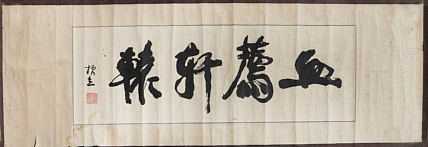 血薦軒轅